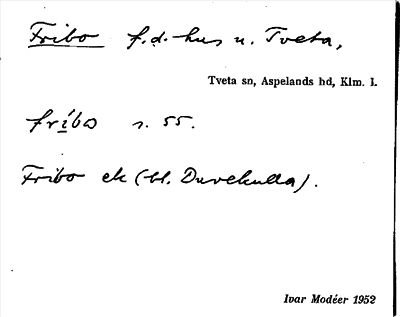 Fribo f.d. hus u. Tveta,
Tveta sn, Aspelands hd, Klm. l.
fribo s. 55.
Fribo ek (bl. Duvekulla).
Ivar Modéer 1952